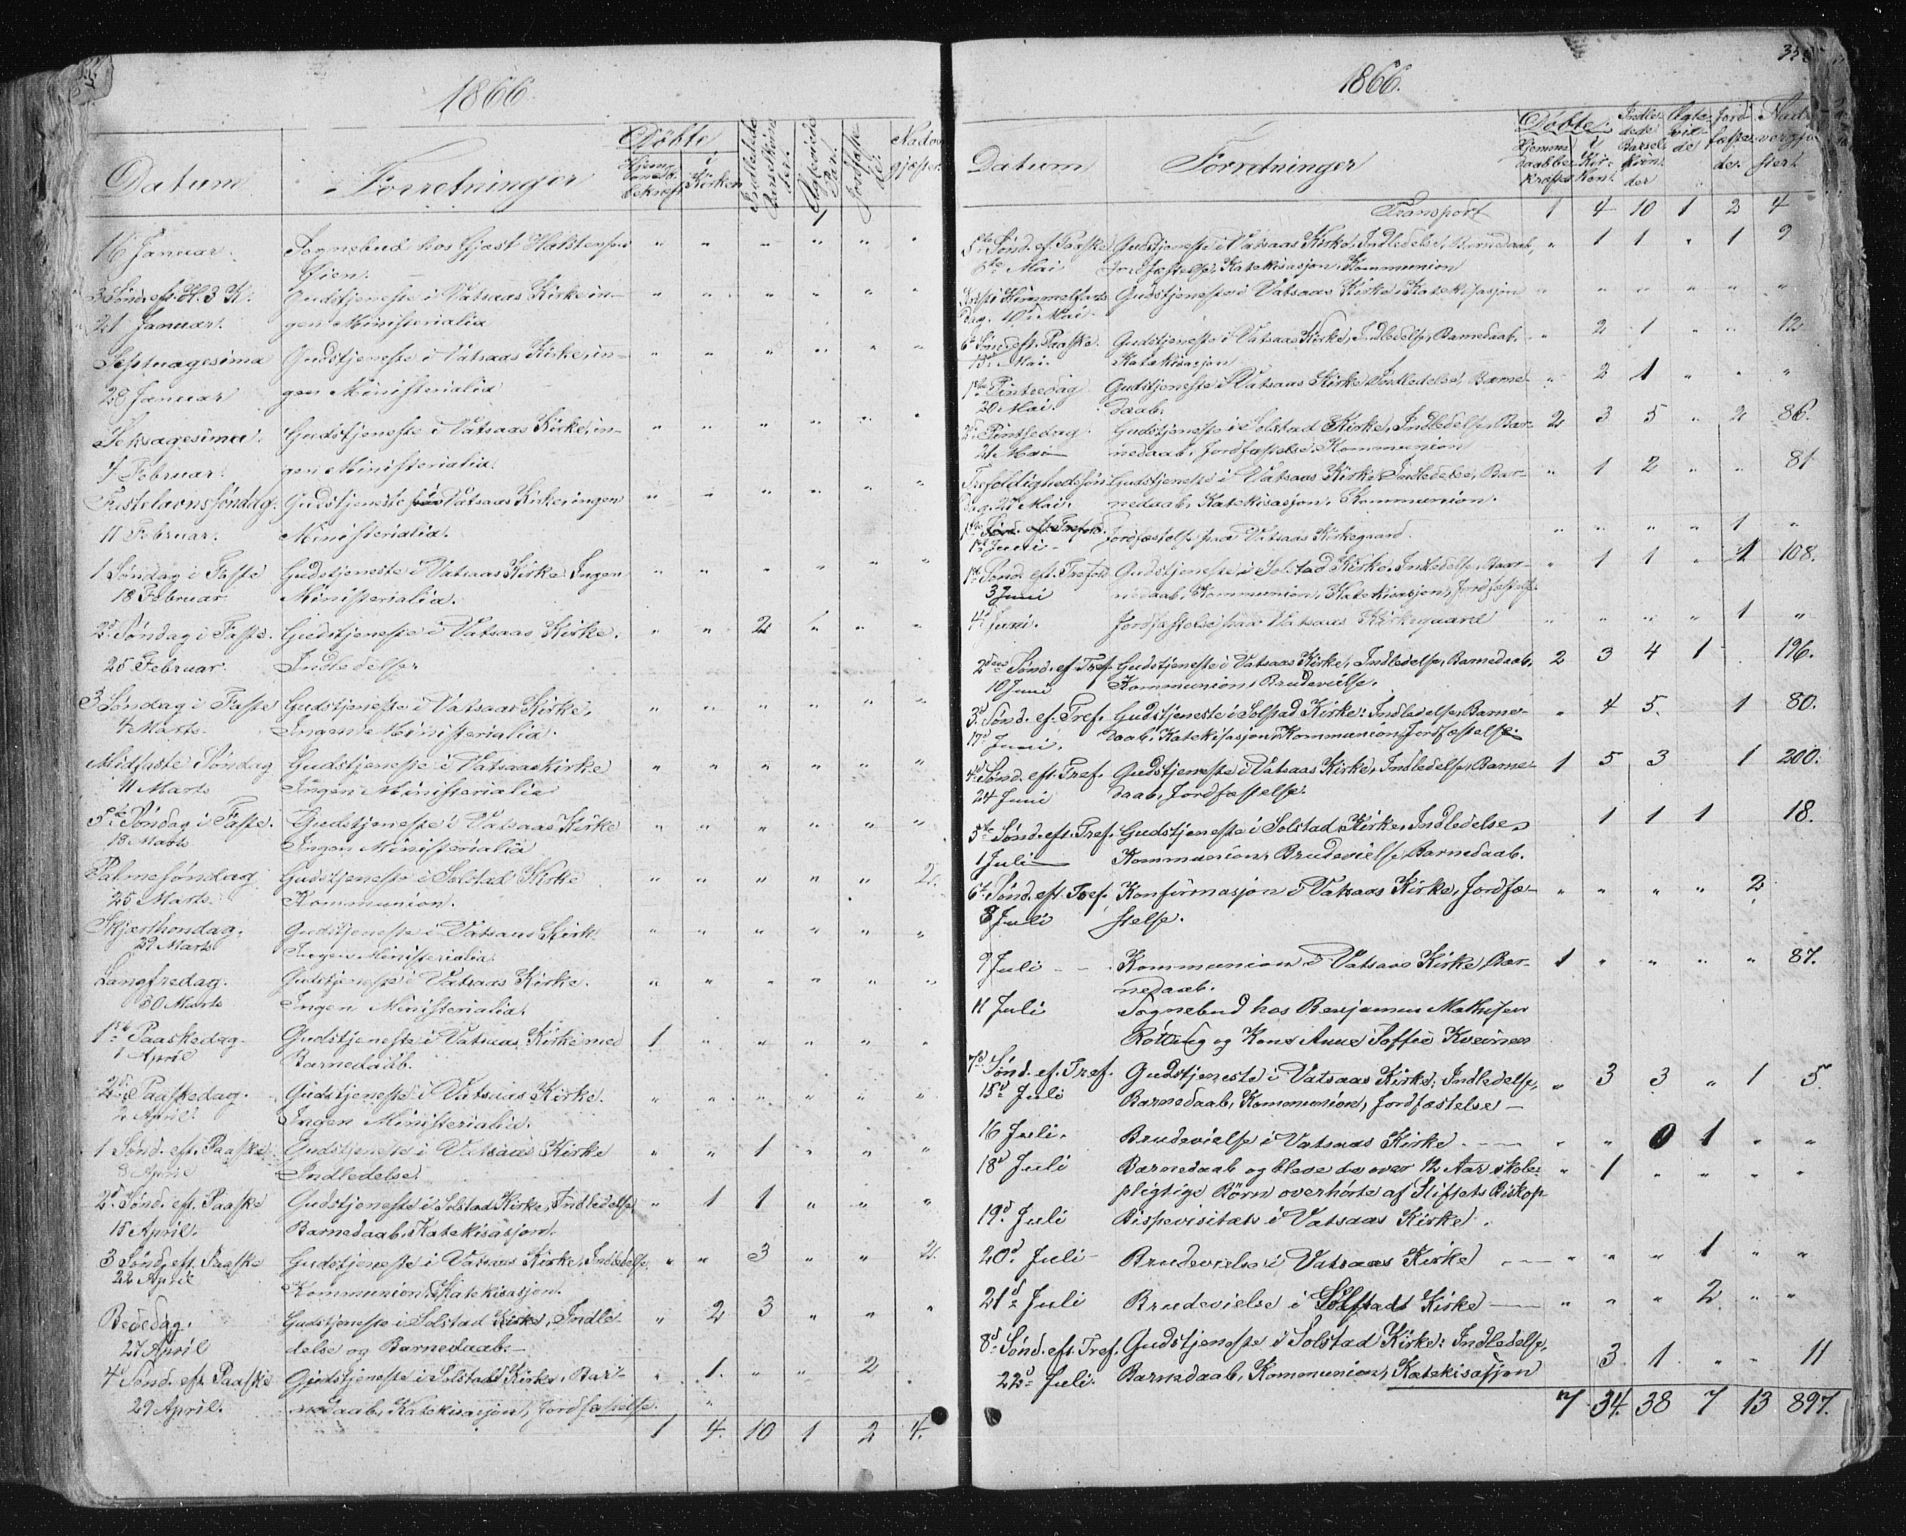 1866.
Datum Forretninger Døbte. Hjemmedøbte bekræft. i Kirken Indledede Barselkoner Ægteviede Par. Jordfæstede Nadvergjæster.
16 Januar. Sognebud hos Gjæst Halstensen " " " " " "
Øien.
3 Sønd. eft. H. 3 K. Gudstjeneste i Vatsaas Kirke, in- " " " " " "
21 Januar. gen Ministerialia
Septuagesima Gudstjeneste i Vatsaas Kirke, in- " " " " " "
28 Januar gen Ministerialia
Seksagesima. Gudstjeneste i Vatsaas Kirke, in- " " " " " "
4 Februar. gen Ministerialia.
Fastelavnssøndag. Gudstjeneste i Vatsaas Kirke, ingen " " " " " "
11 Februar. Ministerialia.
1 Søndag i Faste Gudstjeneste i Vatsaas Kirke. Ingen " " " " " "
18 Februar Ministerialia.
2d Søndag i Faste. Gudstjeneste i Vatsaas Kirke. " " 2 " " "
25 Februar. Indledelse.
3 Søndag i Faste Gudstjeneste i Vatsaas Kirke. " " " " " "
4 Marts. Ingen Ministerialia.
Midfaste Søndag Gudstjeneste i Vatsaas Kirke " " " " " "
11 Marts Ingen Ministerialia
5te Søndag i Faste. Gudstjeneste i Vatsaas Kirke " " " " " "
18 Marts Ingen Ministerialia
Palmesøndag Gudstjeneste i Solstad Kirke " " " " " 2.
25 Marts. Kommunion.
Skjærthorsdag. Gudstjeneste i Vatsaas Kirk. " " " " " "
29 Marts Ingen Ministerialia.
Langfredag. Gudstjeneste i Vatsaas Kirke. " " " " " "
30 Marts Ingen Ministerialia.
1ste Paaskedag. Gudstjeneste i Vatsaas Kirke med 1 " " " " "
1 April Barnedaab.
2d Paaskedag. Gudstjeneste i Vatsaas Kirke. " " " " " "
2 April. Ingen Ministerialia.
1 Sønd. eft. Paaske Gudstjeneste i Vatsaas Kirke " " 1 " " "
8 April Indledelse.
2d Sønd. eft. Paaske Gudstjeneste i Solstad Kirke, Indledelse " 1 1 " " "
15 April. Barnedaab, Katekisasjon.
3 Sønd. eft. Paaske Gudstjeneste i Vatsaas Kirke, Indledelse, " " 3 " " 2.
22 April Kommunion, Katekisasjon.
Bededag. Gudstjeneste i Solstad Kirke, Indle- " 2 3 " " "
27 April delse og Barnedaab.
4d Sønd. eft. Paaske Gudstjeneste i Solstad Kirke, Bar- " 1. " " 2 "
29 April. nedaab, Katekisasjon, Jordfæstelse.
1 4. 10 1 2 4.
1866.
Datum Forretninger Døbte. Hjemmedaabbekræftes i Kirken Indledede Barselkvinder Ægteviede Jordfæstede. Nadvergjæster
Transport 1 4 10 1 2 4
5te Sønd. ef. Paaske Gudstjeneste i Vatsaas Kirke, Indledelse, Barnedaab, " 1 1 " 1 9
6te Mai Jordfæstelse, Katekisasjon, Kommunion
Kristi Himmelfarts Gudstjeneste i Vatsaas Kirke, Katekisasjon " " " " " "
dag. 10d Mai
6te Sønd. eft. Paaske. Gudstjeneste i Vatsaas Kirke, Indledelse, Barnedaab, " 2 1 " " 12
13d Mai. Katekisasjon.
1ste Pintsedag Gudstjeneste i Vatsaas Kirke, Indledelse, Barne- " 2 1 " " "
20 Mai. daab.
2d Pintsedag Gudstjeneste i Solstad Kirke, Indledelse, Bar- 2 3 5 " 2 86.
21 Mai nedaab, Jordfæstelse, Kommunion
Trefoldighedssøn- Gudstjeneste i Vatsaas Kirke, Indledelse, Bar- " 1 2 " " 81
dag. 27 Mai. nedaab, Katekisasjon, Kommunion.
1ste Sønd. eft. Trefold.
1d Juni Jordfæstelse paa Vatsaas Kirkegaard. " " " " 1 "
1ste Sønd. eft. Trefold Gudstjeneste i Solstad Kirke, Indledelse, Bar- " 1 1 " 1 108.
3 Juni nedaab, Kommunion, Katekisasjon, Jordfæstelse
4d Juni. Jordfæstelse paa Vatsaas Kirkegaard " " " " 1 "
2den Sønd. ef. Tref. Gudstjeneste i Vatsaas Kirke, Indledelse, Barnedaab, 2 3 4 1 196.
10 Juni Kommunion, Brudevielse.
3d Sønd. ef. Tref. Gudstjeneste i Solstad Kirke: Indledelse, Barne- " 4 5. 1 80.
17d Juni. daab, Katekisasjon, Kommunion, Jordfæstelse.
4d Sønd. eft. Tref. Gudstjeneste i Vatsaas Kirke, Indledelse, Barne- 1 5 3 1 200.
24 Juni daab, Jordfæstelse.
5te Sønd. eft. Tref. Gudstjeneste i Solstad Kirke, Indledelse, 1 1 1 18.
1 Juli Kommunion, Brudevielse, Barnedaab.
6te Sønd. eft. Tref. Konfirmasjon i Vatsaas Kirke, Jordfæ- " " " " 2
8 Juli stelse.
9 Juli Kommunion i Vatsaas Kirke, Bar- 1 " " " " 87.
nedaab.
11 Juli Sognebud hos Benjamen Mathisen
Røtting og Kone Anne Soffie Kvernes
7d Sønd. ef. Tref. Gudstjeneste i Vatsaas Kirke: Indledelse, " 3 3 " 1 5.
15d Juli Barnedaab, Kommunion, Jordfæstelse
16 Juli. Brudevielse i Vatsaas Kirke " " 0 1 " "
18d Juli Barnedaab og bleve de over 12 Aar skole- " 1 " " " "
pligtige Børn overhørte af Stiftets Biskop
19d Juli Bispevisitats i Vatsaas Kirke.
20d Juli Brudevielse i Vatsaas Kirke " " " 1 " "
21d Juli Brudevielse i Solstads Kirke " " " 2 " "
8d Sønd. eft. Tref. Gudstjeneste i Solstad Kirke: Indledelse, 3 1 " " 11
22d Juli. Barnedaab, Kommunion, Katekisasjon
7 34. 38 7 13 897.